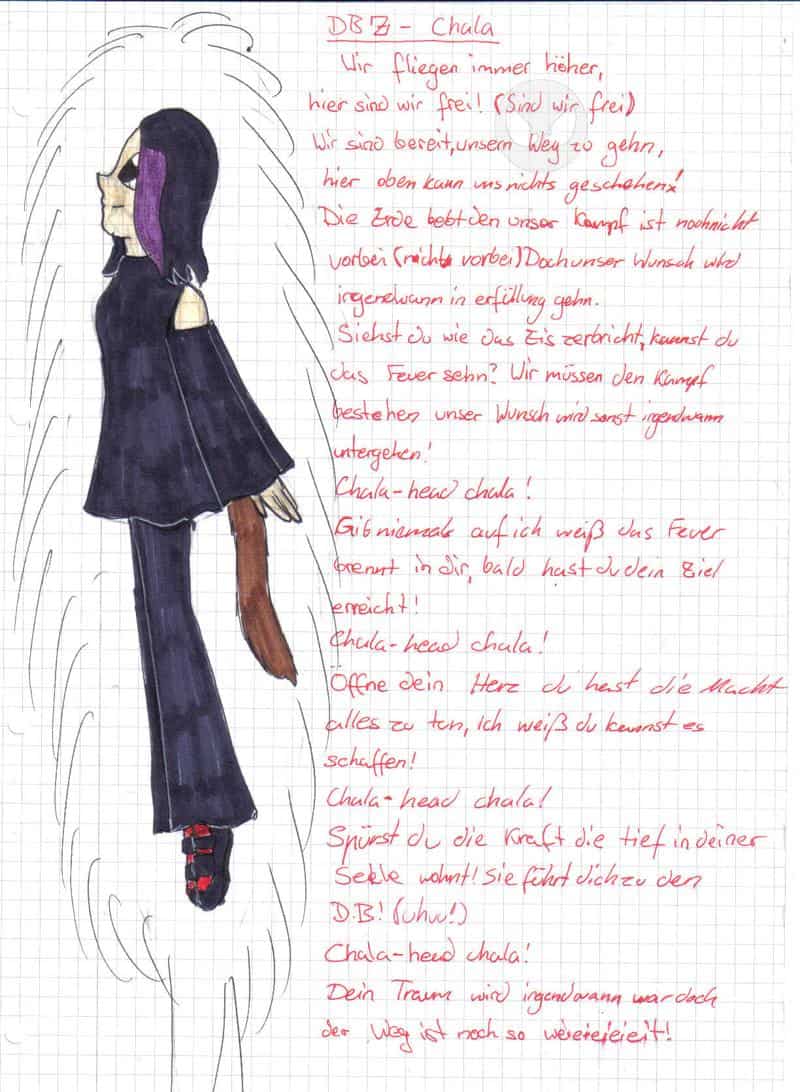 DBZ - Chala
Wir fliegen immer höher,
hier sind wir frei! (Sind wir frei)
Wir sind bereit, unsern Weg zu gehn,
hier oben kann uns nichts geschehen!
Die Erde bebt den unser Kampf ist nochnicht
vorbei (nicht vorbei) Doch unser Wunsch wird
irgendwann in erfüllung gehn.
Siehst du wie das Eis zerbricht, kannst du
das Feuer sehn? Wir müssen den Kampf
bestehen unser Wunsch wird sonst irgendwann
untergehen!
Chala-head chala!
Gib niemals auf ich weiß das Feuer
brennt in dir, bald hast du dein Ziel
erreicht!
Chala-head chala!
Öffne dein Herz du hast die Macht
alles zu tun, ich weiß du kannst es
schaffen!
Chala-head chala!
Spürst du die Kraft die tief in deiner
Seele wohnt! Sie führt dich zu den
D.B! (uhuu!)
Chala-head chala!
Dein Traum wird irgendwann war doch
der Weg ist noch so weieieieieit!